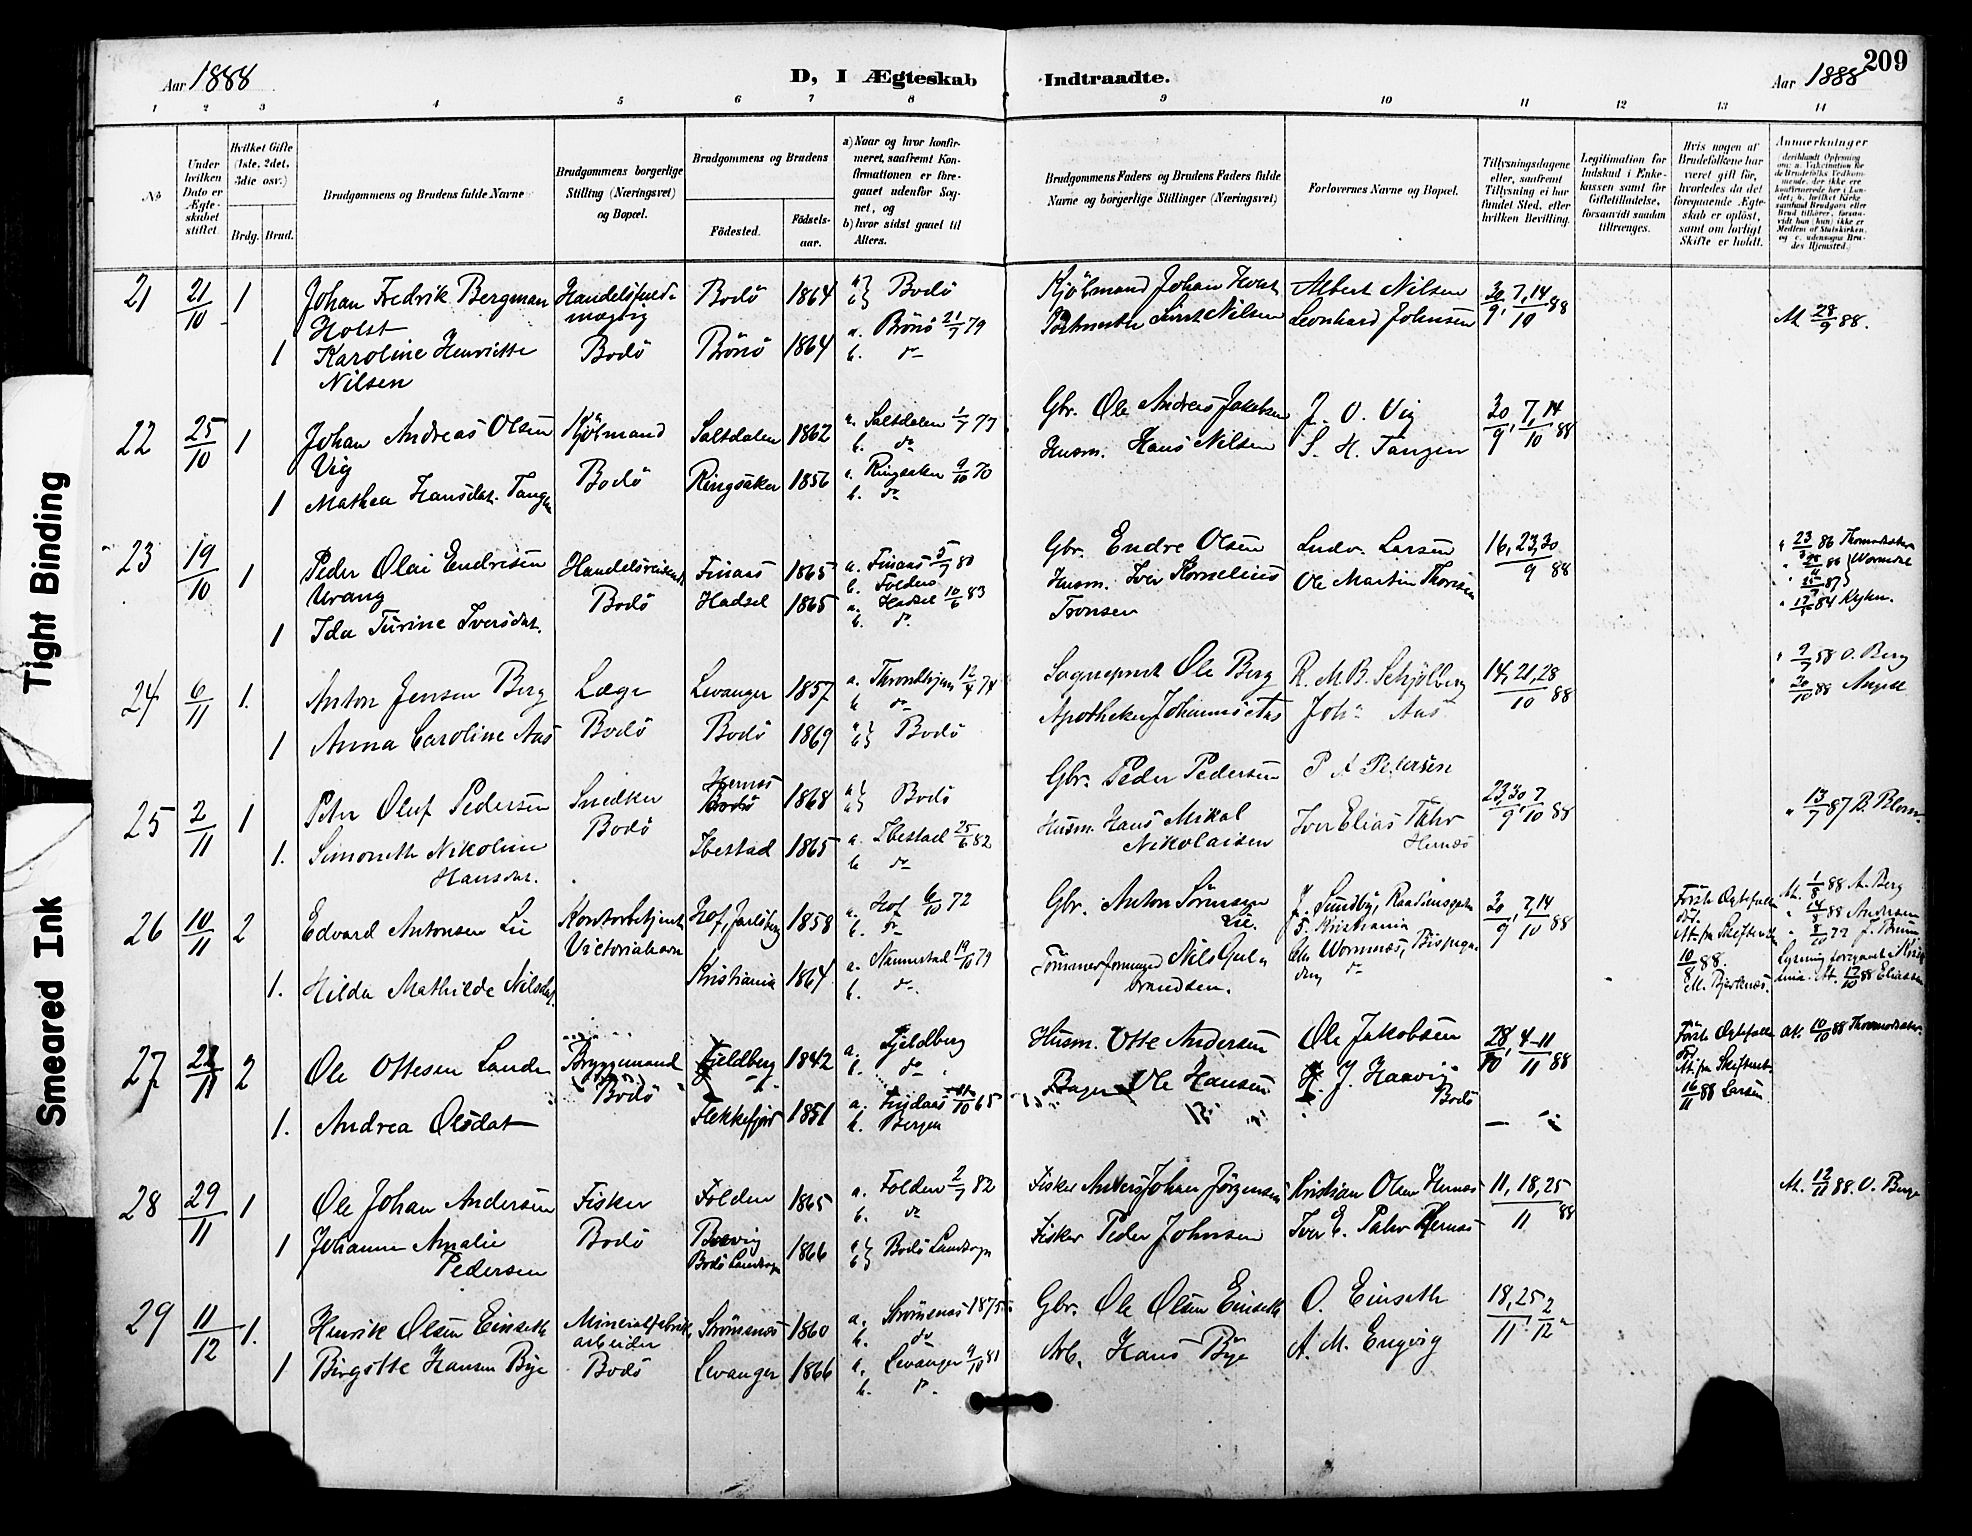 209
Aar 1888
D, I Ægteskab Indtraadte.
Aar 1888
1 2 3 4 5 6 7 8 9 10 11 12 13 14
No
Under hvilken Dato er Ægteskabet stiftet.
Hvilket Gifte (1ste, 2det, 3die osv.)
Brdg. Brud.
Brudgommens og Brudens fulde Navne
Brudgommens borgerlige Stilling (Næringsvei) og Bopæl.
Brudgommens og Brudens
Fødested.
Fødselsaar.
a) Naar og hvor konfirmeret, saafremt Konfirmationen er foregaaet udenfor Sognet, og
b) hvor sidst gaaet til Alters.
Brudgommens Faders og Brudens Faders fulde Navne og borgerlige Stillinger (Næringsvei)
Forlovernes Navne og Bopæl.
Tillysningsdagene eller, saafremt Tillysning ei har fundet Sted, efter hvilken Bevilling.
Legitimation for Indskud i Enkekassen samt for Giftetilladelse, forsaavidt saadan tiltrænges.
Hvis nogen af Brudefolkene har været gift før, hvorledes da det foregaaende Ægteskab er opløst, samt om lovligt Skifte er holdt.
Anmærkninger
21 21/10 1 Johan Fredrik Bergman Holst
Bodö 1864 a. b. Bodö
Kjölmand Johan Holst Albert Nilsen 30/9, 7, 14/10 88
1 Karoline Henriette Nilsen
Bodö Brönö 1864 a. Brönö 21/7 79 b. do
Nilsen Leonhard Johnsen
At. 28/9 88.
22 25/10 1 Johan Andreas Olsen Vig
Kjölmand Saltdalen 1862 a. Saltdalen 1/7 77 b. do
Gbr. Ole Andreas Jakobsen J. O. Vig 30/9, 7, 14/10 88
1 Mathea Hansdat. Tangen
Bodö Ringsaker 1856 a. Ringsaker 9/10 70 b. do
Husm. Hans Nilsen S. H. Tangen
23 19/10 1 Peder Olai Endresen Urang
Handelsreisende Finaas 1865 a. Finaas 5/7 80 b. Folden
Gbr. Endre Olsen Ludv. Larsen 16, 23, 30/9 88
1 Ida Turine Iversdat.
Bodö Hadsel 1865 a. Hadsel 10/6 83 b. do
Husm. Iver Kornelius Tronsen Ole Martin Thoresen
24 6/11 1. Anton Jensen Berg
Læge Levanger 1857 a. Throndhjem 12/4 74 b. do
Sogneprest Ole Berg R. M. B. Schjölberg 14, 21, 28/10 88
1 Anna Caroline Aas
Bodö Bodö 1869 a. b. Bodö
Apotheker Johannes Aas Johs Aas
25 2/11 1 Peter Oluf Pedersen
Snedker Hernes Bodö 1868 a. b. Bodö
Gbr. Peder Pedersen P A Petersen 23, 30/9, 7/10 88
1. Simonette Nikoline Hansdat.
Bodö Ibestad 1865 a. Ibestad 25/6 82 b. do
Husm. Hans Mikal Nikolaisen Iver Elias Hernæs
13/7 87 B. Blom
26 10/11 2 Edvard Antonsen Lie
Kontorbetjent Victoriahavn Hof, Jarlsberg 1858 a. Hof 6/10 72 b. do
Gbr. Anton Sörensen Lie. J. Sundby, Kristiania 30/9, 7, 14/10 88
1. Hilda Mathilde Nilsdat.
Kristiania 1864 a. 19/10 79 b. do.
Tömmerformand Nils Gulbrandsen.
Förste Ægtefælle död. At. fra Skifteretten 10/8 88. M. Bjerknæs.
At. 1/8 88 A. Berg
27 22/11 2 Ole Ottesen Lande
Bryggemand Bodö Fjeldberg 1842 a. Fjeldberg b. do
Husm. Otte Andersen Ole Jakobsen 28/10, 4-11/11 88
1. Andrea Olsdat
Flekkefjord 1851 a. 11/10 65 b. Bergen
Bager Ole Hansen H. J. Haavig Bodö
Förste Ægtefælle död. At. fra Skifteret 16/11 88 Larsen
At. 10/10 88
28 29/11 1 Ole Johan Andersen
Fisker Folden 1865 a. Folden 2/7 82 b. do
Fisker Anders Johan Jörgensen Kristian Olsen Hernæs 11, 18, 25/11 88
1 Johanne Amalie Pedersen
Bodö Bodö Landsogn 1866 a. b. Bodö Landsogn
Fisker Peder Johnsen Iver E. Hernæs
At. 12/11 88. O. Berg
29 11/12 1. Henrik Olsen Einseth
Mineralfabrikarbeider Strömsnæs 1860 a. Strömsnæs 1875 b. do
Gbr. Ole Olsen Einseth O. Einseth 18, 25/11, 2/12
1 Birgitte Hansen Bye
Bodö Levanger 1866 a. Levanger 9/10 81 b. do.
Arb. Hans Bye A. M. Engvig
Tight Binding
Smeared Ink